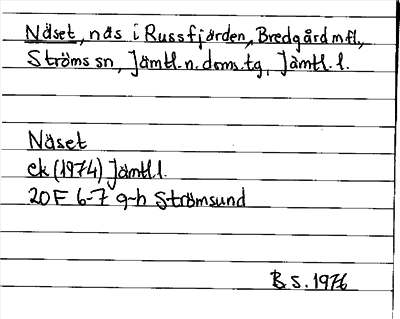 Näset, näs i Russfjärden, Bredgård m fl,
Ströms sn, Jämtl. n. doms. tg, Jämtl. l.
Näset
ek (1974) Jämtl. l.
20 F 6-7 g-h Strömsund
B. S. 1976